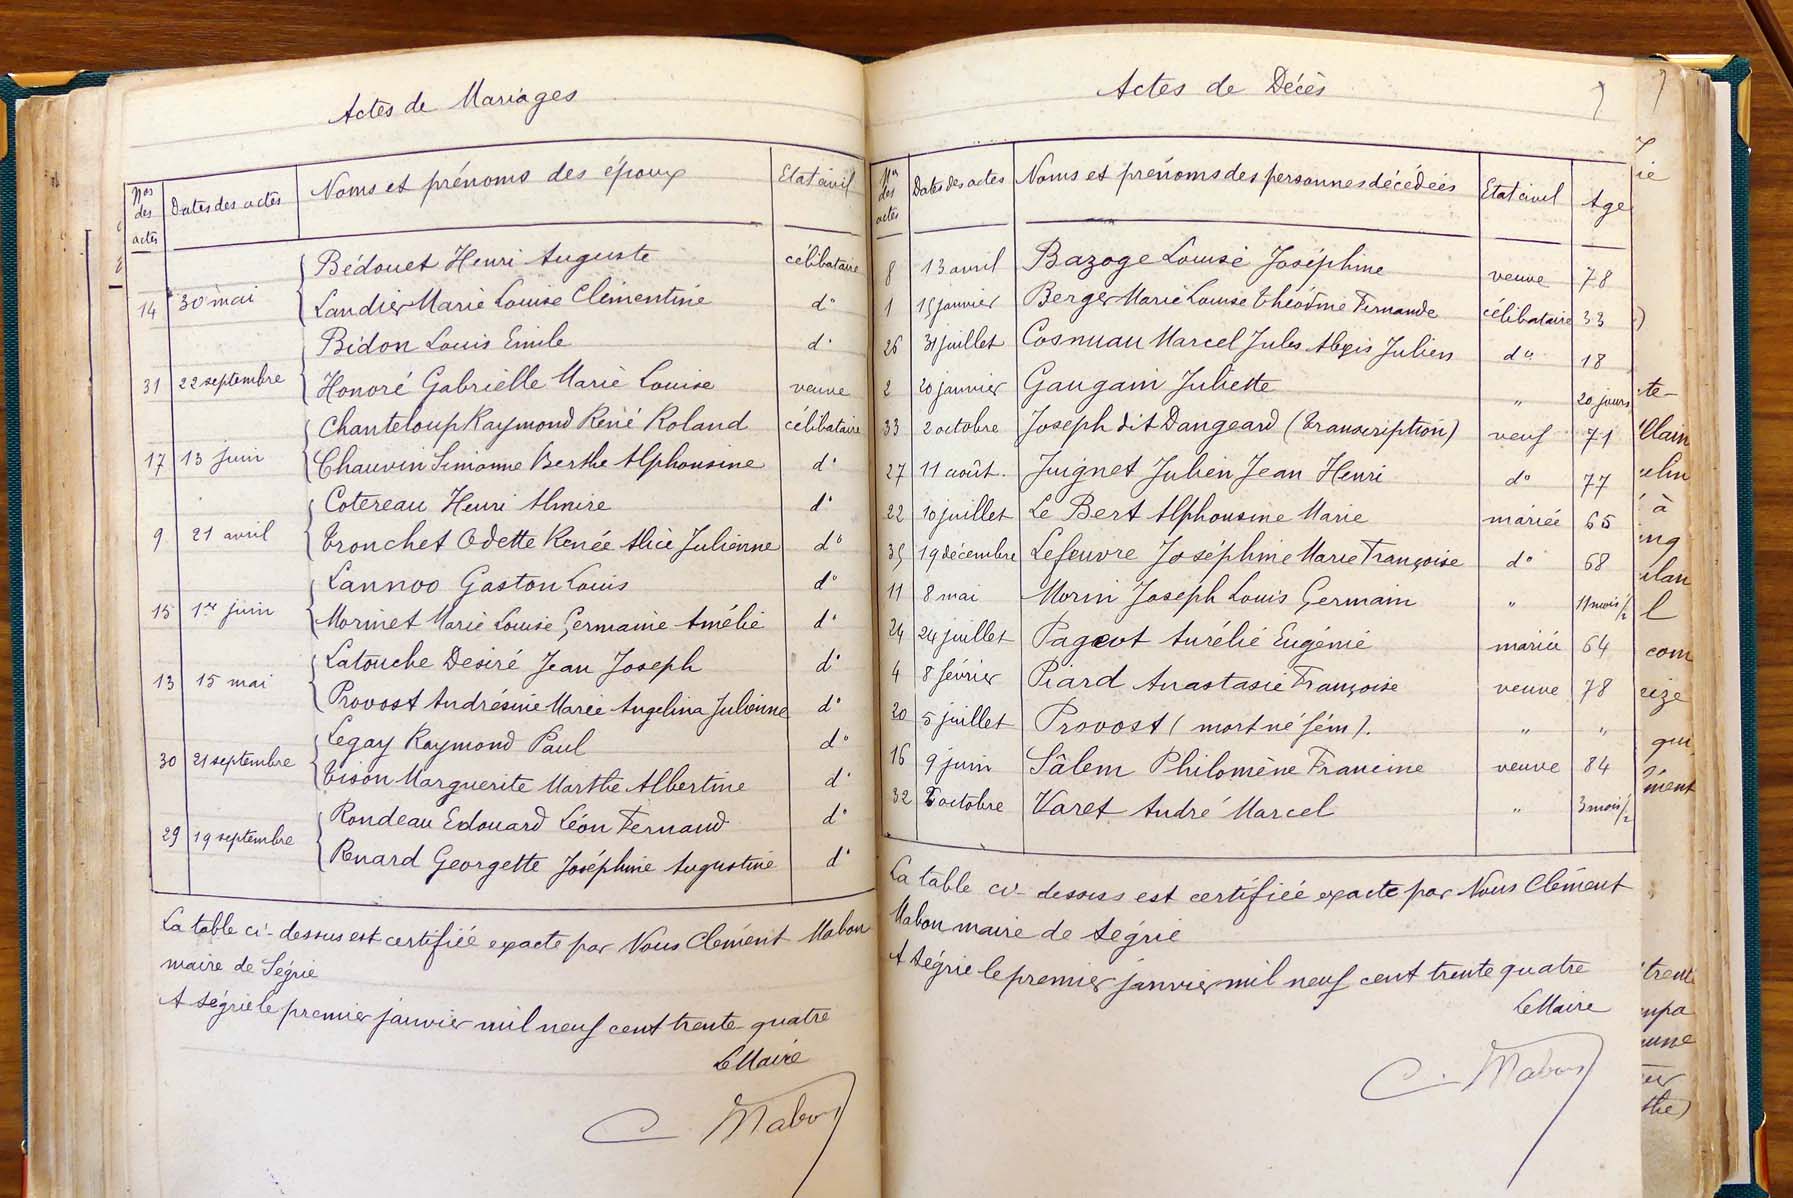 Actes de Mariages
Nos des actes | Dates des actes | Noms et prénoms des époux | Etat civil
Bédouet Henri Auguste | célibataire
14 | 30 mai | Landier Marie Louise Clémentine | do
Bidon Louis Emile | do
31 | 22 septembre | Honoré Gabrielle Marie Louise | veuve
Chanteloup Raymond René Roland | célibataire
17 | 13 juin | Chauvin Simonne Berthe Alphonsine | do
Cotereau Henri Almire | do
9 | 21 avril | Tronchet Odette Renée Alice Julienne | do
Lannoo Gaston Louis | do
15 | 1er juin | Morinet Marie Louise Germaine Amélie | do
Latouche Desiré Jean Joseph | do
13 | 15 mai | Provost Andrésine Marie Angelina Julienne | do
Legay Raymond Paul | do
30 | 21 septembre | Tison Marguerite Marthe Albertine | do
Rondeau Edouard Léon Fernand | do
29 | 19 septembre | Renard Georgette Joséphine Augustine | do
La table ci-dessus est certifiée exacte par Nous Clément Mabon
maire de Ségrie
A Ségrie le premier janvier mil neuf cent trente quatre
Le Maire
C. Mabon
Actes de Décès
7
Nos des actes | Dates des actes | Noms et prénoms des personnes décédées | Etat civil | Age
8 | 13 avril | Bazoge Louise Joséphine | veuve | 78
1 | 15 janvier | Berger Marie Louise Fernande | célibataire | 33
26 | 31 juillet | Cosnuau Marcel Jules Alexis Julien | do | 18
2 | 20 janvier | Gaugain Juliette | " | 20 jours
33 | 2 octobre | Joseph dit Dangeard (transcription) | veuf | 71
27 | 11 août | Juignet Julien Jean Henri | do | 77
22 | 10 juillet | Le Bert Alphonsine Marie | mariée | 65
35 | 19 décembre | Lefeuvre Joséphine Marie Françoise | do | 68
11 | 8 mai | Morin Joseph Louis Germain | " | 11 mois 1/2
24 | 24 juillet | Pageot Aurélie Eugénie | mariée | 64
4 | 8 février | Piard Anastasie Françoise | veuve | 78
20 | 5 juillet | Provost (mort né fém). | " | "
16 | 9 juin | Sâlem Philomène Francine | veuve | 84
32 | octobre | Varet André Marcel | " | 3 mois 1/2
La table ci-dessus est certifiée exacte par Nous Clément
Mabon maire de Ségrie
A Ségrie le premier janvier mil neuf cent trente quatre
Le Maire
C. Mabon